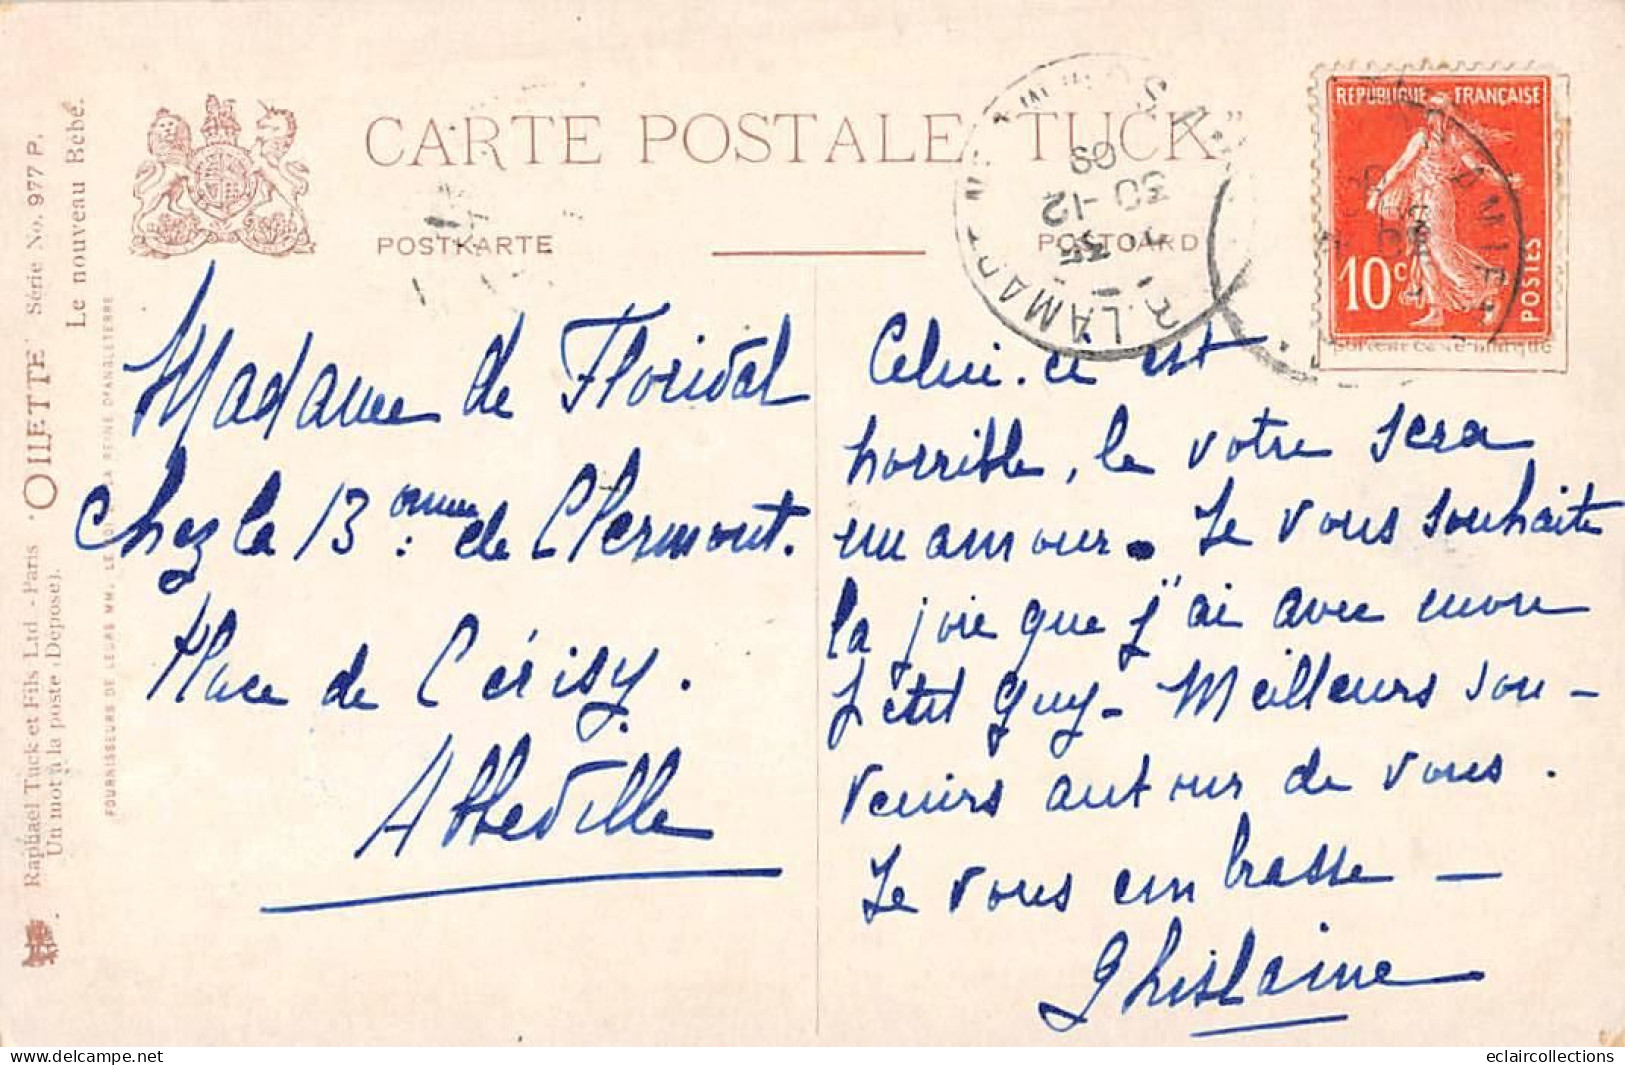 CARTE POSTALE "TUCK"
POSTKARTE
POSTCARD
Raphaël Tuck et Fils Ltd - Paris "OILETTE" Série No. 977 P.
Un mot à la poste (Déposé). Le nouveau Bébé.
FOURNISSEURS DE LEURS MM. LE ROI ET LA REINE D'ANGLETERRE
30-12
09
RÉPUBLIQUE FRANÇAISE
10c
POSTES
Madame de Florival
Chez la 13 de Clermont.
Place de Cérisy.
Abbeville
Celui-ci est
horrible, le votre sera
un amour. Je vous souhaite
la joie que j'ai avec mon
petit Guy - Meilleurs sou-
venirs autour de vous.
Je vous embrasse -
Ghislaine
eclaircollections